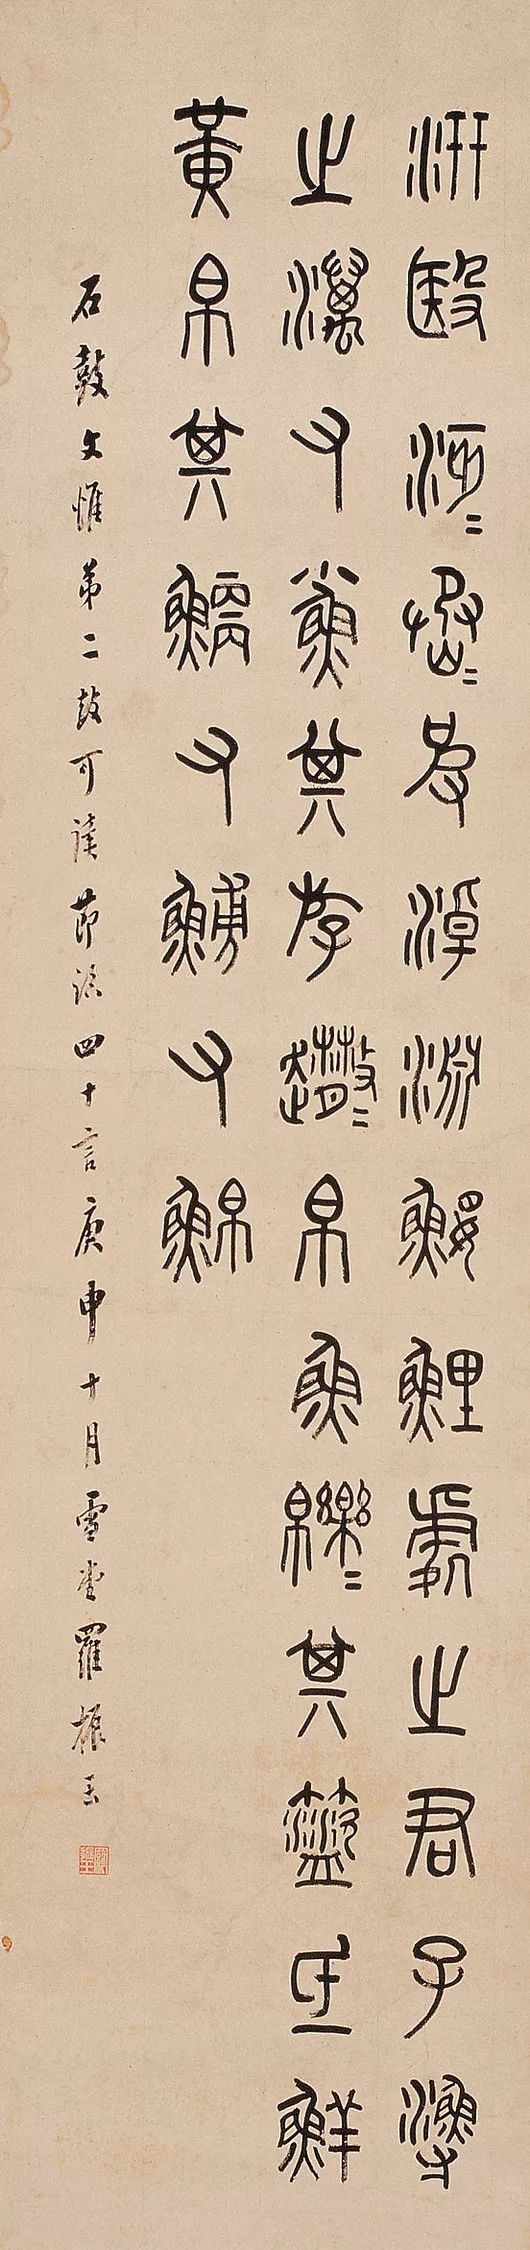 汧殹沔沔丞丞皮淖淵鰋鯉處之君子漁
之澫又小魚其斿𧽙𧽙帛魚皪皪其盜氐鮮
黃帛其鯾又鰟又鮊
石鼓文惟第二鼓可讀節臨四十言庚申十月雪堂羅振玉